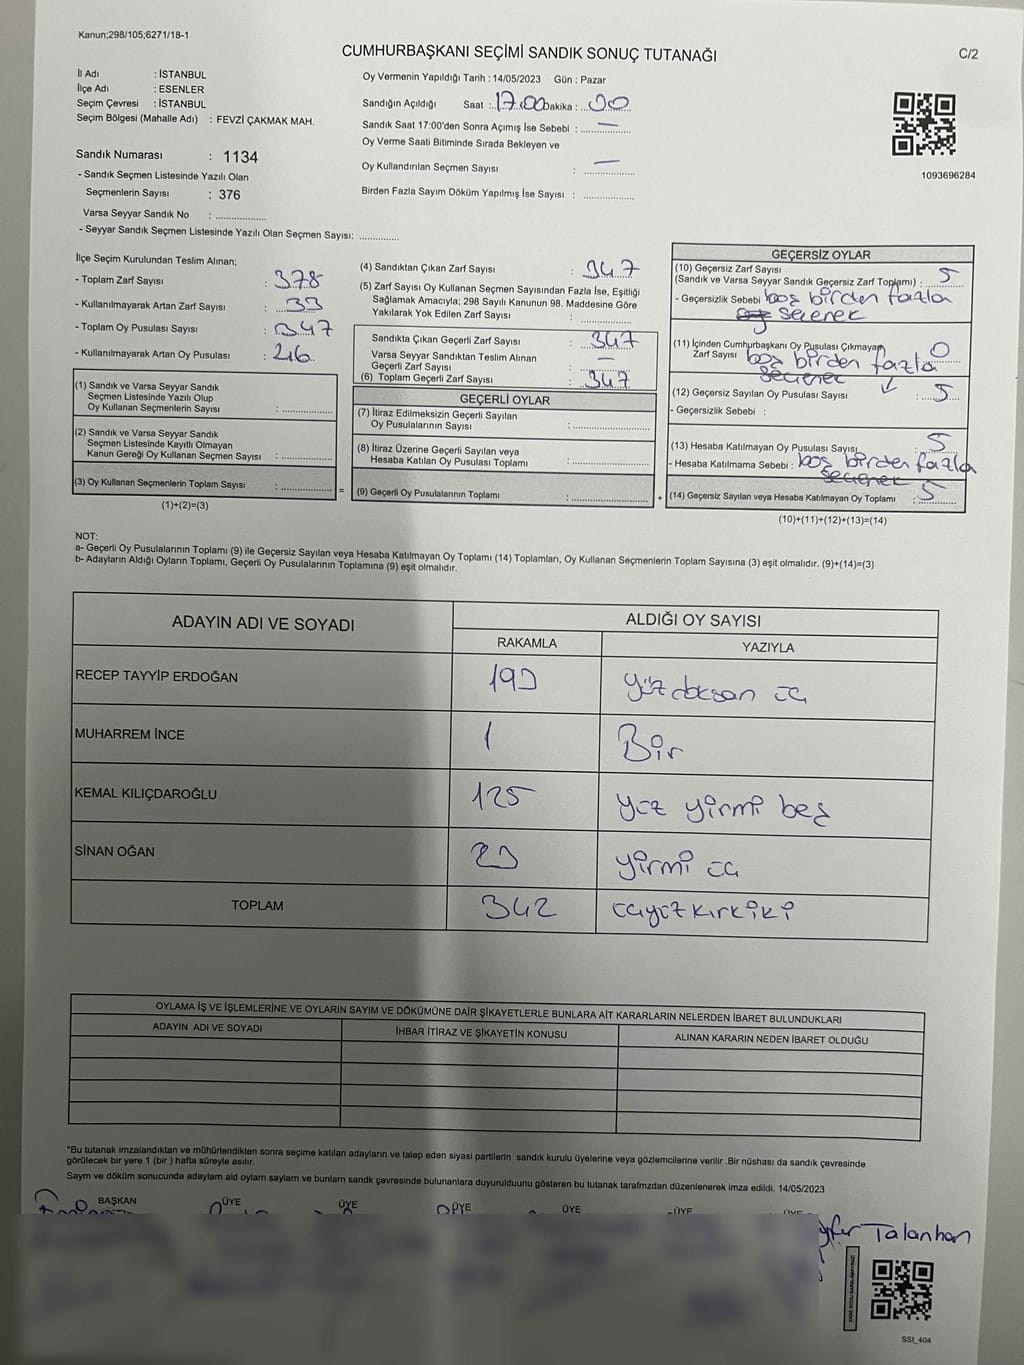 Kanun;298/105;6271/18-1
CUMHURBAŞKANI SEÇİMİ SANDIK SONUÇ TUTANAĞI
C/2
İl Adı : İSTANBUL
İlçe Adı : ESENLER
Seçim Çevresi : İSTANBUL
Seçim Bölgesi (Mahalle Adı) : FEVZİ ÇAKMAK MAH.
Sandık Numarası : 1134
- Sandık Seçmen Listesinde Yazılı Olan
Seçmenlerin Sayısı : 376
Varsa Seyyar Sandık No : ..................
- Seyyar Sandık Seçmen Listesinde Yazılı Olan Seçmen Sayısı: ..............
Oy Vermenin Yapıldığı Tarih : 14/05/2023 Gün : Pazar
Sandığın Açıldığı Saat : 17.00 Dakika : 00
Sandık Saat 17:00'den Sonra Açımış İse Sebebi : —
Oy Verme Saati Bitiminde Sırada Bekleyen ve
Oy Kullandırılan Seçmen Sayısı : —
Birden Fazla Sayım Döküm Yapılmış İse Sayısı : ..................
1093696284
İlçe Seçim Kurulundan Teslim Alınan;
- Toplam Zarf Sayısı : 378
- Kullanılmayarak Artan Zarf Sayısı : 33
- Toplam Oy Pusulası Sayısı : 347
- Kullanılmayarak Artan Oy Pusulası : 26
(1) Sandık ve Varsa Seyyar Sandık
Seçmen Listesinde Yazılı Olup
Oy Kullanan Seçmenlerin Sayısı : ..................
(2) Sandık ve Varsa Seyyar Sandık
Seçmen Listesinde Kayıtlı Olmayan
Kanun Gereği Oy Kullanan Seçmen Sayısı : ..................
(3) Oy Kullanan Seçmenlerin Toplam Sayısı : ..................
(1)+(2)=(3)
=
(4) Sandıktan Çıkan Zarf Sayısı : 347
(5) Zarf Sayısı Oy Kullanan Seçmen Sayısından Fazla İse, Eşitliği
Sağlamak Amacıyla; 298 Sayılı Kanunun 98. Maddesine Göre
Yakılarak Yok Edilen Zarf Sayısı : ..................
Sandıkta Çıkan Geçerli Zarf Sayısı : 347
Varsa Seyyar Sandıktan Teslim Alınan
Geçerli Zarf Sayısı : —
(6) Toplam Geçerli Zarf Sayısı : 347
GEÇERLİ OYLAR
(7) İtiraz Edilmeksizin Geçerli Sayılan
Oy Pusulalarının Sayısı : ..................
(8) İtiraz Üzerine Geçerli Sayılan veya
Hesaba Katılan Oy Pusulası Toplamı : ..................
(9) Geçerli Oy Pusulalarının Toplamı : ..................
+
GEÇERSİZ OYLAR
(10) Geçersiz Zarf Sayısı
(Sandık ve Varsa Seyyar Sandık Geçersiz Zarf Toplamı) : 5
- Geçersizlik Sebebi boş birden fazla
seçenek
(11) İçinden Cumhurbaşkanı Oy Pusulası Çıkmayan
Zarf Sayısı 0
boş birden fazla
seçenek
(12) Geçersiz Sayılan Oy Pusulası Sayısı : 5
- Geçersizlik Sebebi :
(13) Hesaba Katılmayan Oy Pusulası Sayısı : 5
- Hesaba Katılmama Sebebi : boş birden fazla
seçenek
(14) Geçersiz Sayılan veya Hesaba Katılmayan Oy Toplamı : 5
(10)+(11)+(12)+(13)=(14)
NOT:
a- Geçerli Oy Pusulalarının Toplamı (9) ile Geçersiz Sayılan veya Hesaba Katılmayan Oy Toplamı (14) Toplamları, Oy Kullanan Seçmenlerin Toplam Sayısına (3) eşit olmalıdır. (9)+(14)=(3)
b- Adayların Aldığı Oyların Toplamı, Geçerli Oy Pusulalarının Toplamına (9) eşit olmalıdır.
ADAYIN ADI VE SOYADI
ALDIĞI OY SAYISI
RAKAMLA YAZIYLA
RECEP TAYYİP ERDOĞAN 193 yüz doksan üç
MUHARREM İNCE 1 Bir
KEMAL KILIÇDAROĞLU 125 yüz yirmi beş
SİNAN OĞAN 23 yirmi üç
TOPLAM 342 üçyüz kırkiki
OYLAMA İŞ VE İŞLEMLERİNE VE OYLARIN SAYIM VE DÖKÜMÜNE DAİR ŞİKAYETLERLE BUNLARA AİT KARARLARIN NELERDEN İBARET BULUNDUKLARI
ADAYIN ADI VE SOYADI İHBAR İTİRAZ VE ŞİKAYETİN KONUSU ALINAN KARARIN NEDEN İBARET OLDUĞU
*Bu tutanak imzalandıktan ve mühürlendikten sonra seçime katılan adayların ve talep eden siyasi partilerin sandık kurulu üyelerine veya gözlemcilerine verilir .Bir nüshası da sandık çevresinde
görülecek bir yere 1 (bir ) hafta süreyle asılır.
Sayım ve döküm sonucunda adayların ald oyların sayların ve bunların sandk çevresinde bulunanlara duyurulduunu gösteren bu tutanak tarafmzdan düzenlenerek imza edildi. 14/05/2023
BAŞKAN ÜYE ÜYE ÜYE ÜYE ÜYE ÜYE
Talanhan
SSI_404